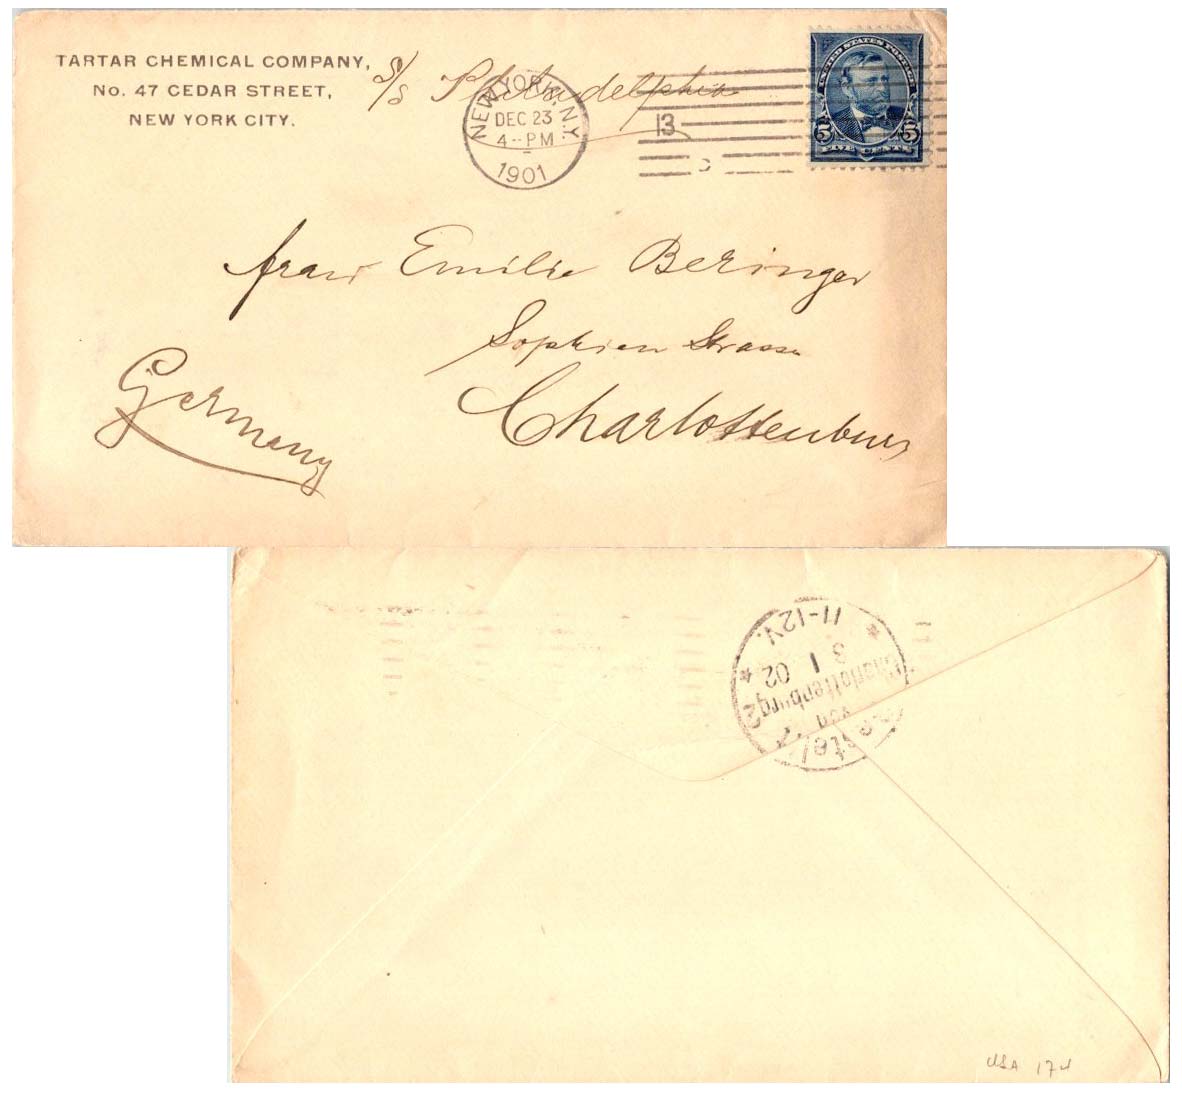 TARTAR CHEMICAL COMPANY,
No. 47 CEDAR STREET,
NEW YORK CITY.
S/S Philadelphia
NEW YORK, N.Y.
DEC 23
4-PM
1901
13
UNITED STATES POSTAGE
5 5
FIVE CENTS
Frau Emilie Beringer
Sophien Strasse
Charlottenburg
Germany
Bestellt
von
Charlottenburg 2
3 1 02
11-12V.
USA 174